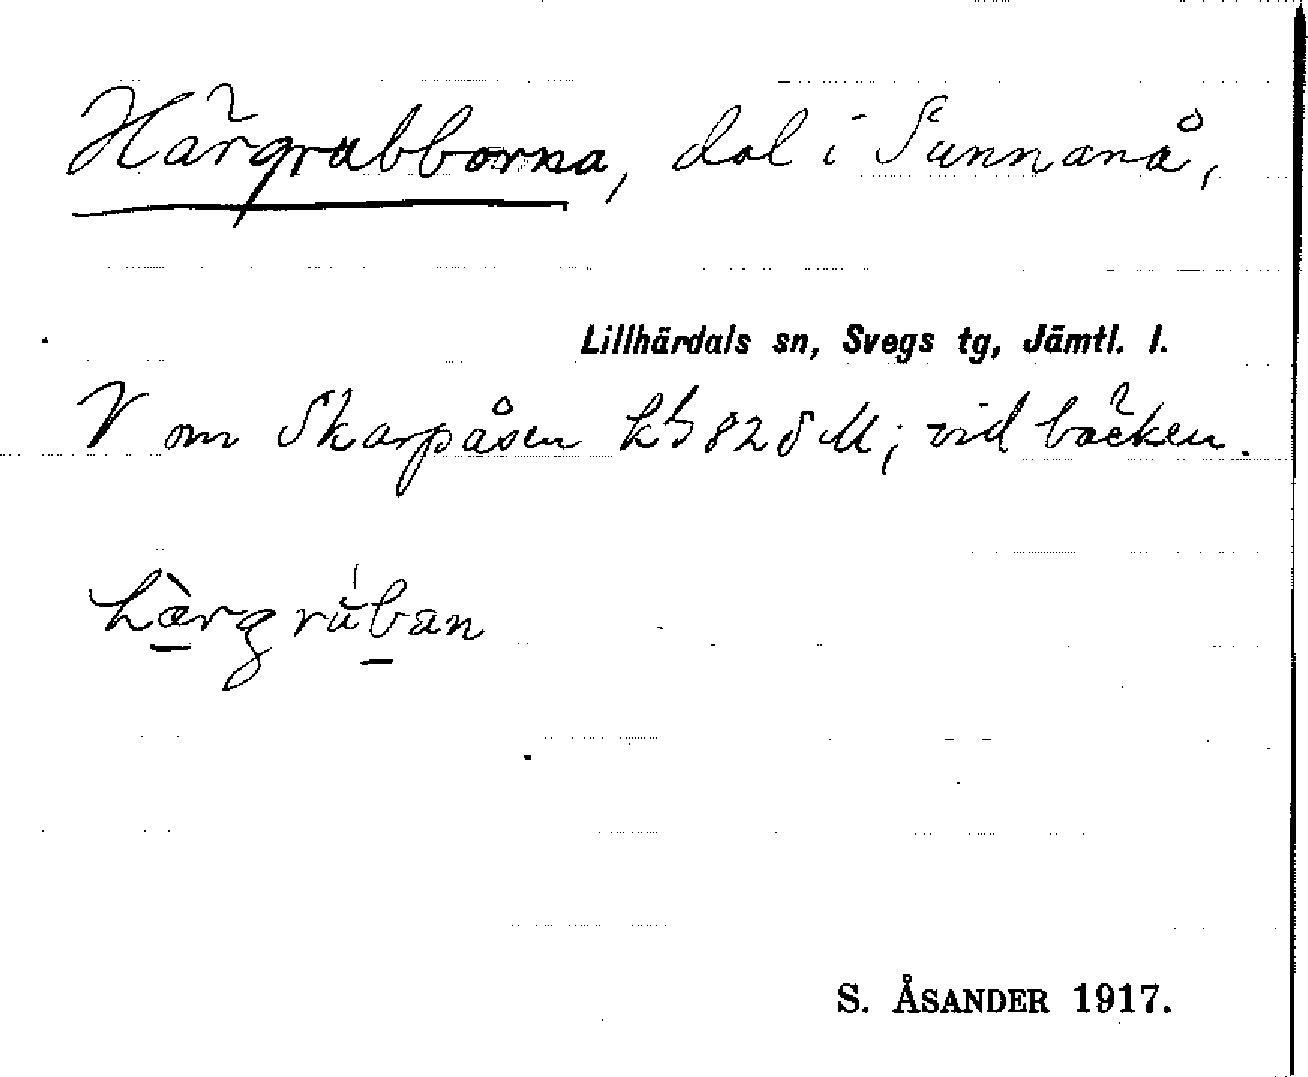 Härgrubborna, dal i Sunnanå,
Lillhärdals sn, Svegs tg, Jämtl. l.
V om Skarpåsen 828 M; vid bäcken.
hàrgrúban
S. ÅSANDER 1917.